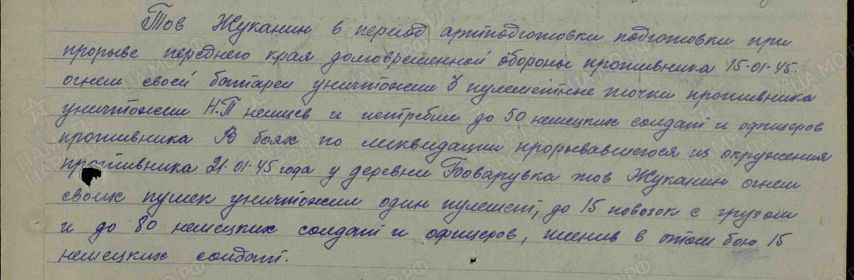 Тов Жуканин в период артподготовки подготовки при
прорыве переднего края долговременной обороны противника 15-01-45.
огнем своей батареи уничтожил 3 пулеметные точки противника
уничтожил Н.П немцев и истребил до 50 немецких солдат и офицеров
противника В боях по ликвидации прорывавшегося из окружения
противника 21-01-45 года у деревни Боварувка тов Жуканин огнем
своих пушек уничтожил один пулемет, до 15 повозок с грузом
и до 80 немецких солдат и офицеров, пленив в этом бою 15
немецких солдат.